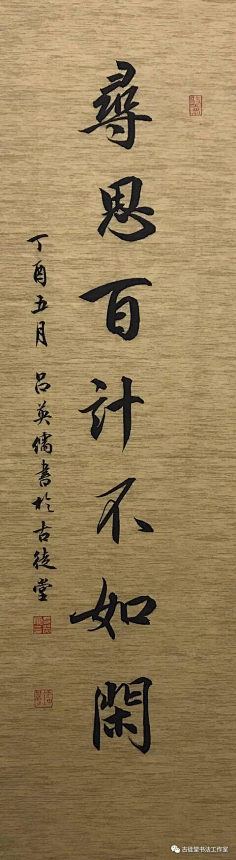 尋思百計不如閑
丁酉五月 吕英儒書於古徒堂
古徒堂书法工作室